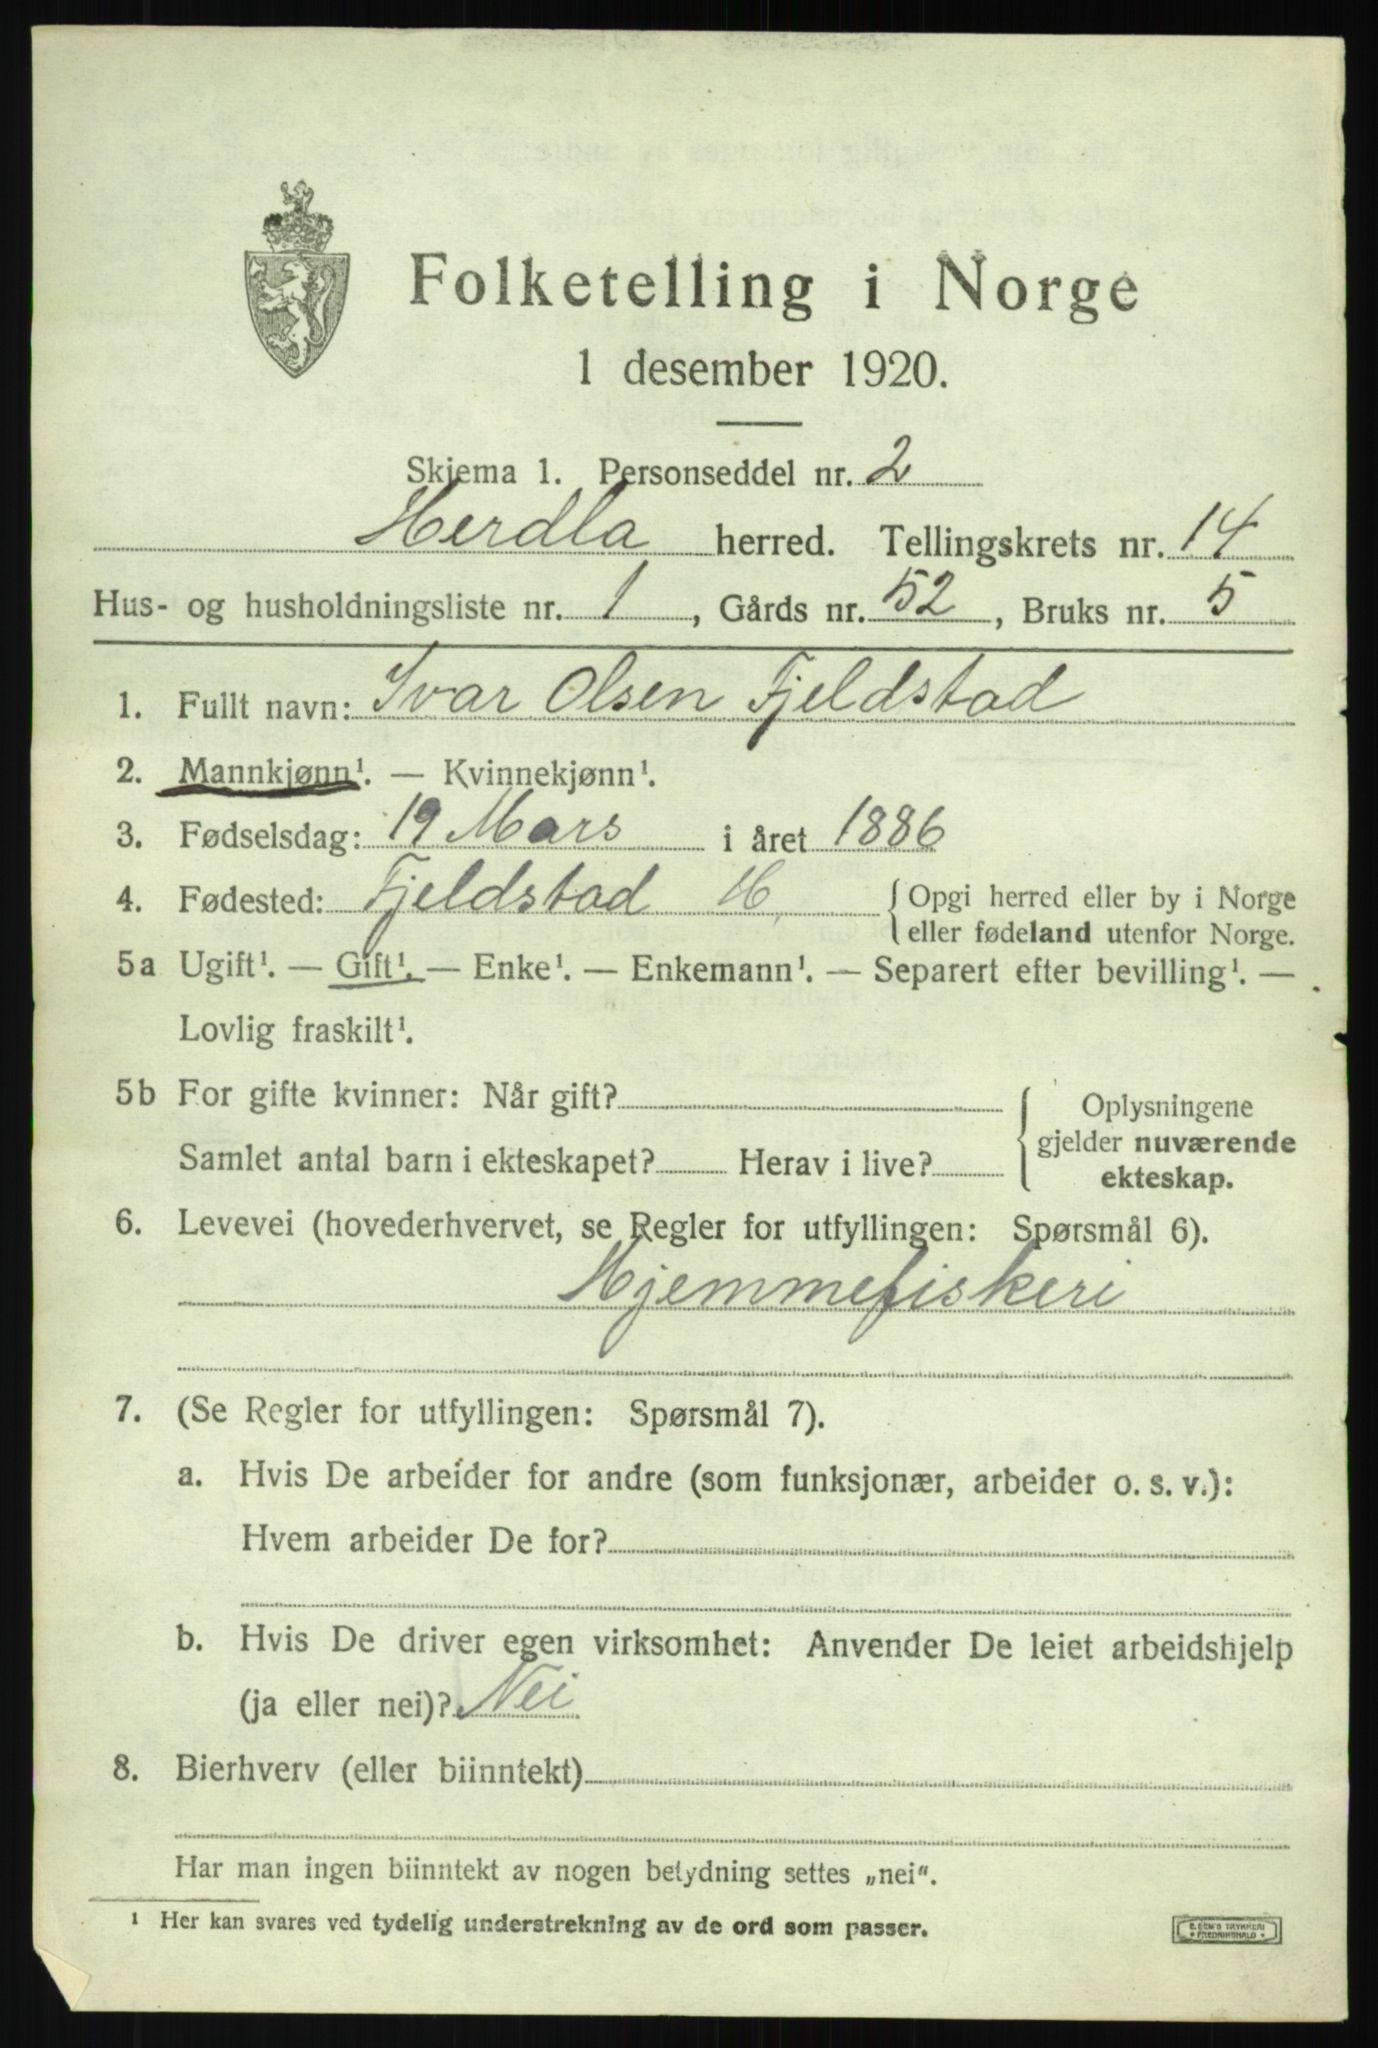 Folketelling i Norge
1 desember 1920.
Skjema 1. Personseddel nr. 2
Herdla herred. Tellingskrets nr. 14
Hus- og husholdningsliste nr. 1, Gårds nr. 52, Bruks nr. 5
1. Fullt navn: Ivar Olsen Fjeldstad
2. Mannkjønn¹. — Kvinnekjønn¹.
3. Fødselsdag: 19 Mars i året 1886
4. Fødested: Fjeldstad H. { Opgi herred eller by i Norge
eller fødeland utenfor Norge.
5a Ugift¹. — Gift¹. — Enke¹. — Enkemann¹. — Separert efter bevilling¹. —
Lovlig fraskilt¹.
5b For gifte kvinner: Når gift? { Oplysningene
gjelder nuværende
Samlet antal barn i ekteskapet? Herav i live?
ekteskap.
6. Levevei (hovederhvervet, se Regler for utfyllingen: Spørsmål 6).
Hjemmefiskeri
7. (Se Regler for utfyllingen: Spørsmål 7).
a. Hvis De arbeider for andre (som funksjonær, arbeider o. s. v.):
Hvem arbeider De for?
b. Hvis De driver egen virksomhet: Anvender De leiet arbeidshjelp
(ja eller nei)? Nei
8. Bierhverv (eller biinntekt)
Har man ingen biinntekt av nogen betydning settes „nei“.
¹ Her kan svares ved tydelig understrekning av de ord som passer.
TRYKKERI
FREDRIKSHALD